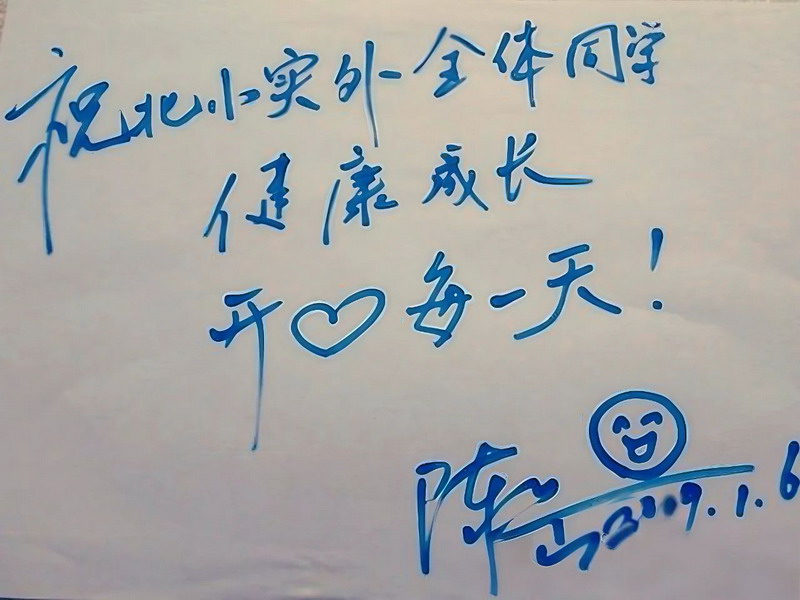 祝北小实外全体同学
健康成长
开♡每一天！
陈
9.1.6